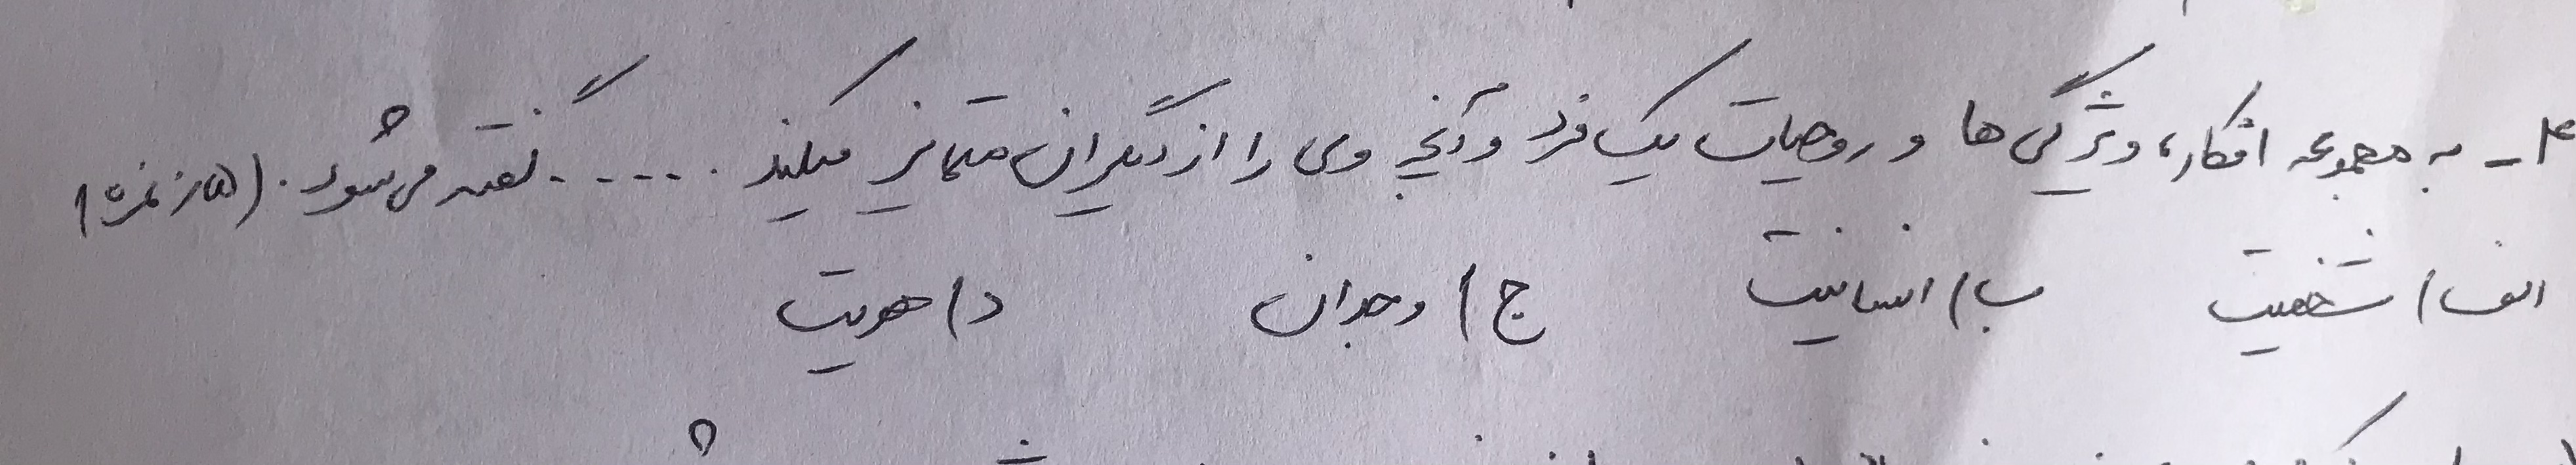 ۴- به مجموعه افکار، ویژگی ها و روحیات یک فرد و آنچه وی را از دیگران متمایز میکند ..... گفته می شود. (۵/. نمره)
الف) شخصیت ب) انسانیت ج) وجدان د) هویت